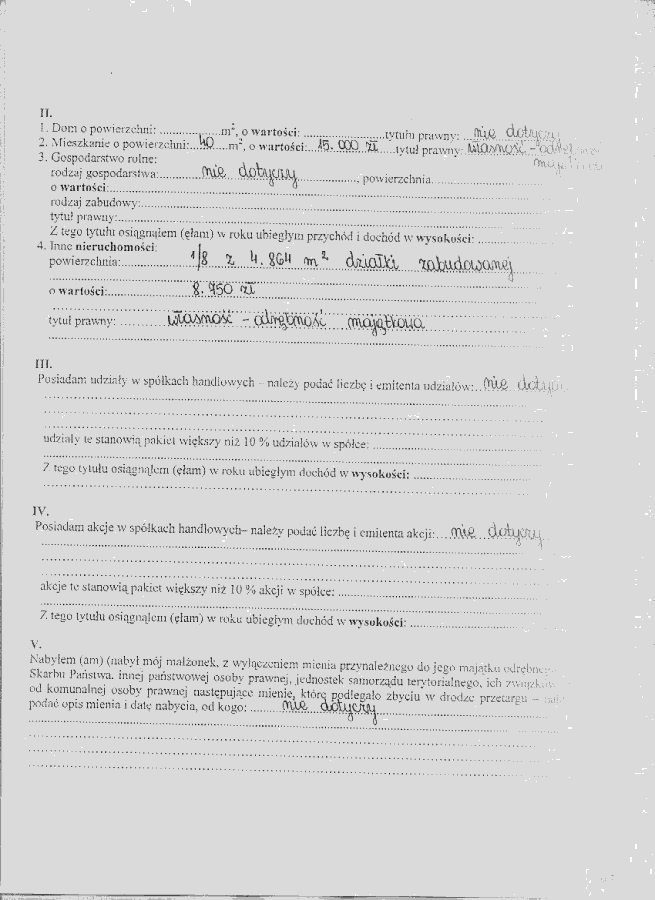 II.
1. Dom o powierzchni: ....................m², o wartości: ........................tytułu prawny: ...nie dotyczy
2. Mieszkanie o powierzchni:..40....m², o wartości:....15.000 zł.....tytuł prawny: własność -
3. Gospodarstwo rolne:
rodzaj gospodarstwa:............nie dotyczy................, powierzchnia................................
o wartości:................................................................
rodzaj zabudowy:................................................................
tytuł prawny:................................................................
Z tego tytułu osiągnąłem (ęłam) w roku ubiegłym przychód i dochód w wysokości: ....................
4. Inne nieruchomości:
powierzchnia:............ 1/8 z 4.864 m² działki zabudowanej
o wartości:............8.950 zł
tytuł prawny: ............własność - odrębność majątkowa
III.
Posiadam udziały w spółkach handlowych – należy podać liczbę i emitenta udziałów:...nie
udziały te stanowią pakiet większy niż 10 % udziałów w spółce: ................................
Z tego tytułu osiągnąłem (ęłam) w roku ubiegłym dochód w wysokości: ................................
IV.
Posiadam akcje w spółkach handlowych– należy podać liczbę i emitenta akcji:....nie dotyczy
akcje te stanowią pakiet większy niż 10 % akcji w spółce: ................................
Z tego tytułu osiągnąłem (ęłam) w roku ubiegłym dochód w wysokości: ................................
V.
Nabyłem (am) (nabył mój małżonek, z wyłączeniem mienia przynależnego do jego majątku
Skarbu Państwa, innej państwowej osoby prawnej, jednostek samorządu terytorialnego, ich
od komunalnej osoby prawnej następujące mienie, które podlegało zbyciu w drodze przetargu –
podać opis mienia i datę nabycia, od kogo: ........nie dotyczy